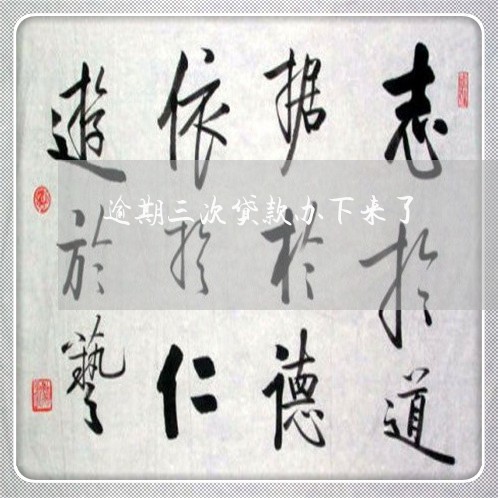 志於道
据於德
依於仁
遊於藝
逾期三次贷款办下来了